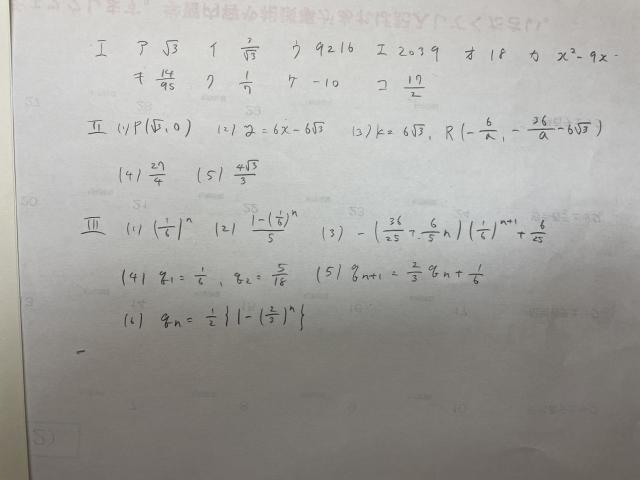 I ア √3 イ 2/√3 ウ 9216 エ 2039 オ 18 カ x²-9x
キ 14/95 ク 1/7 ケ -10 コ 17/2
II (1) P(√3, 0) (2) y=6x-6√3 (3) k=6√3, R(-6/a, -36/a-6√3)
(4) 27/4 (5) 4√3/3
III (1) (1/6)ⁿ (2) (1-(1/6)ⁿ)/5 (3) -(36/25+6/5n)(1/6)ⁿ⁺¹+6/25
(4) q₁=1/6, q₂=5/18 (5) qₙ₊₁=2/3qₙ+1/6
(6) qₙ=1/2{1-(2/3)ⁿ}